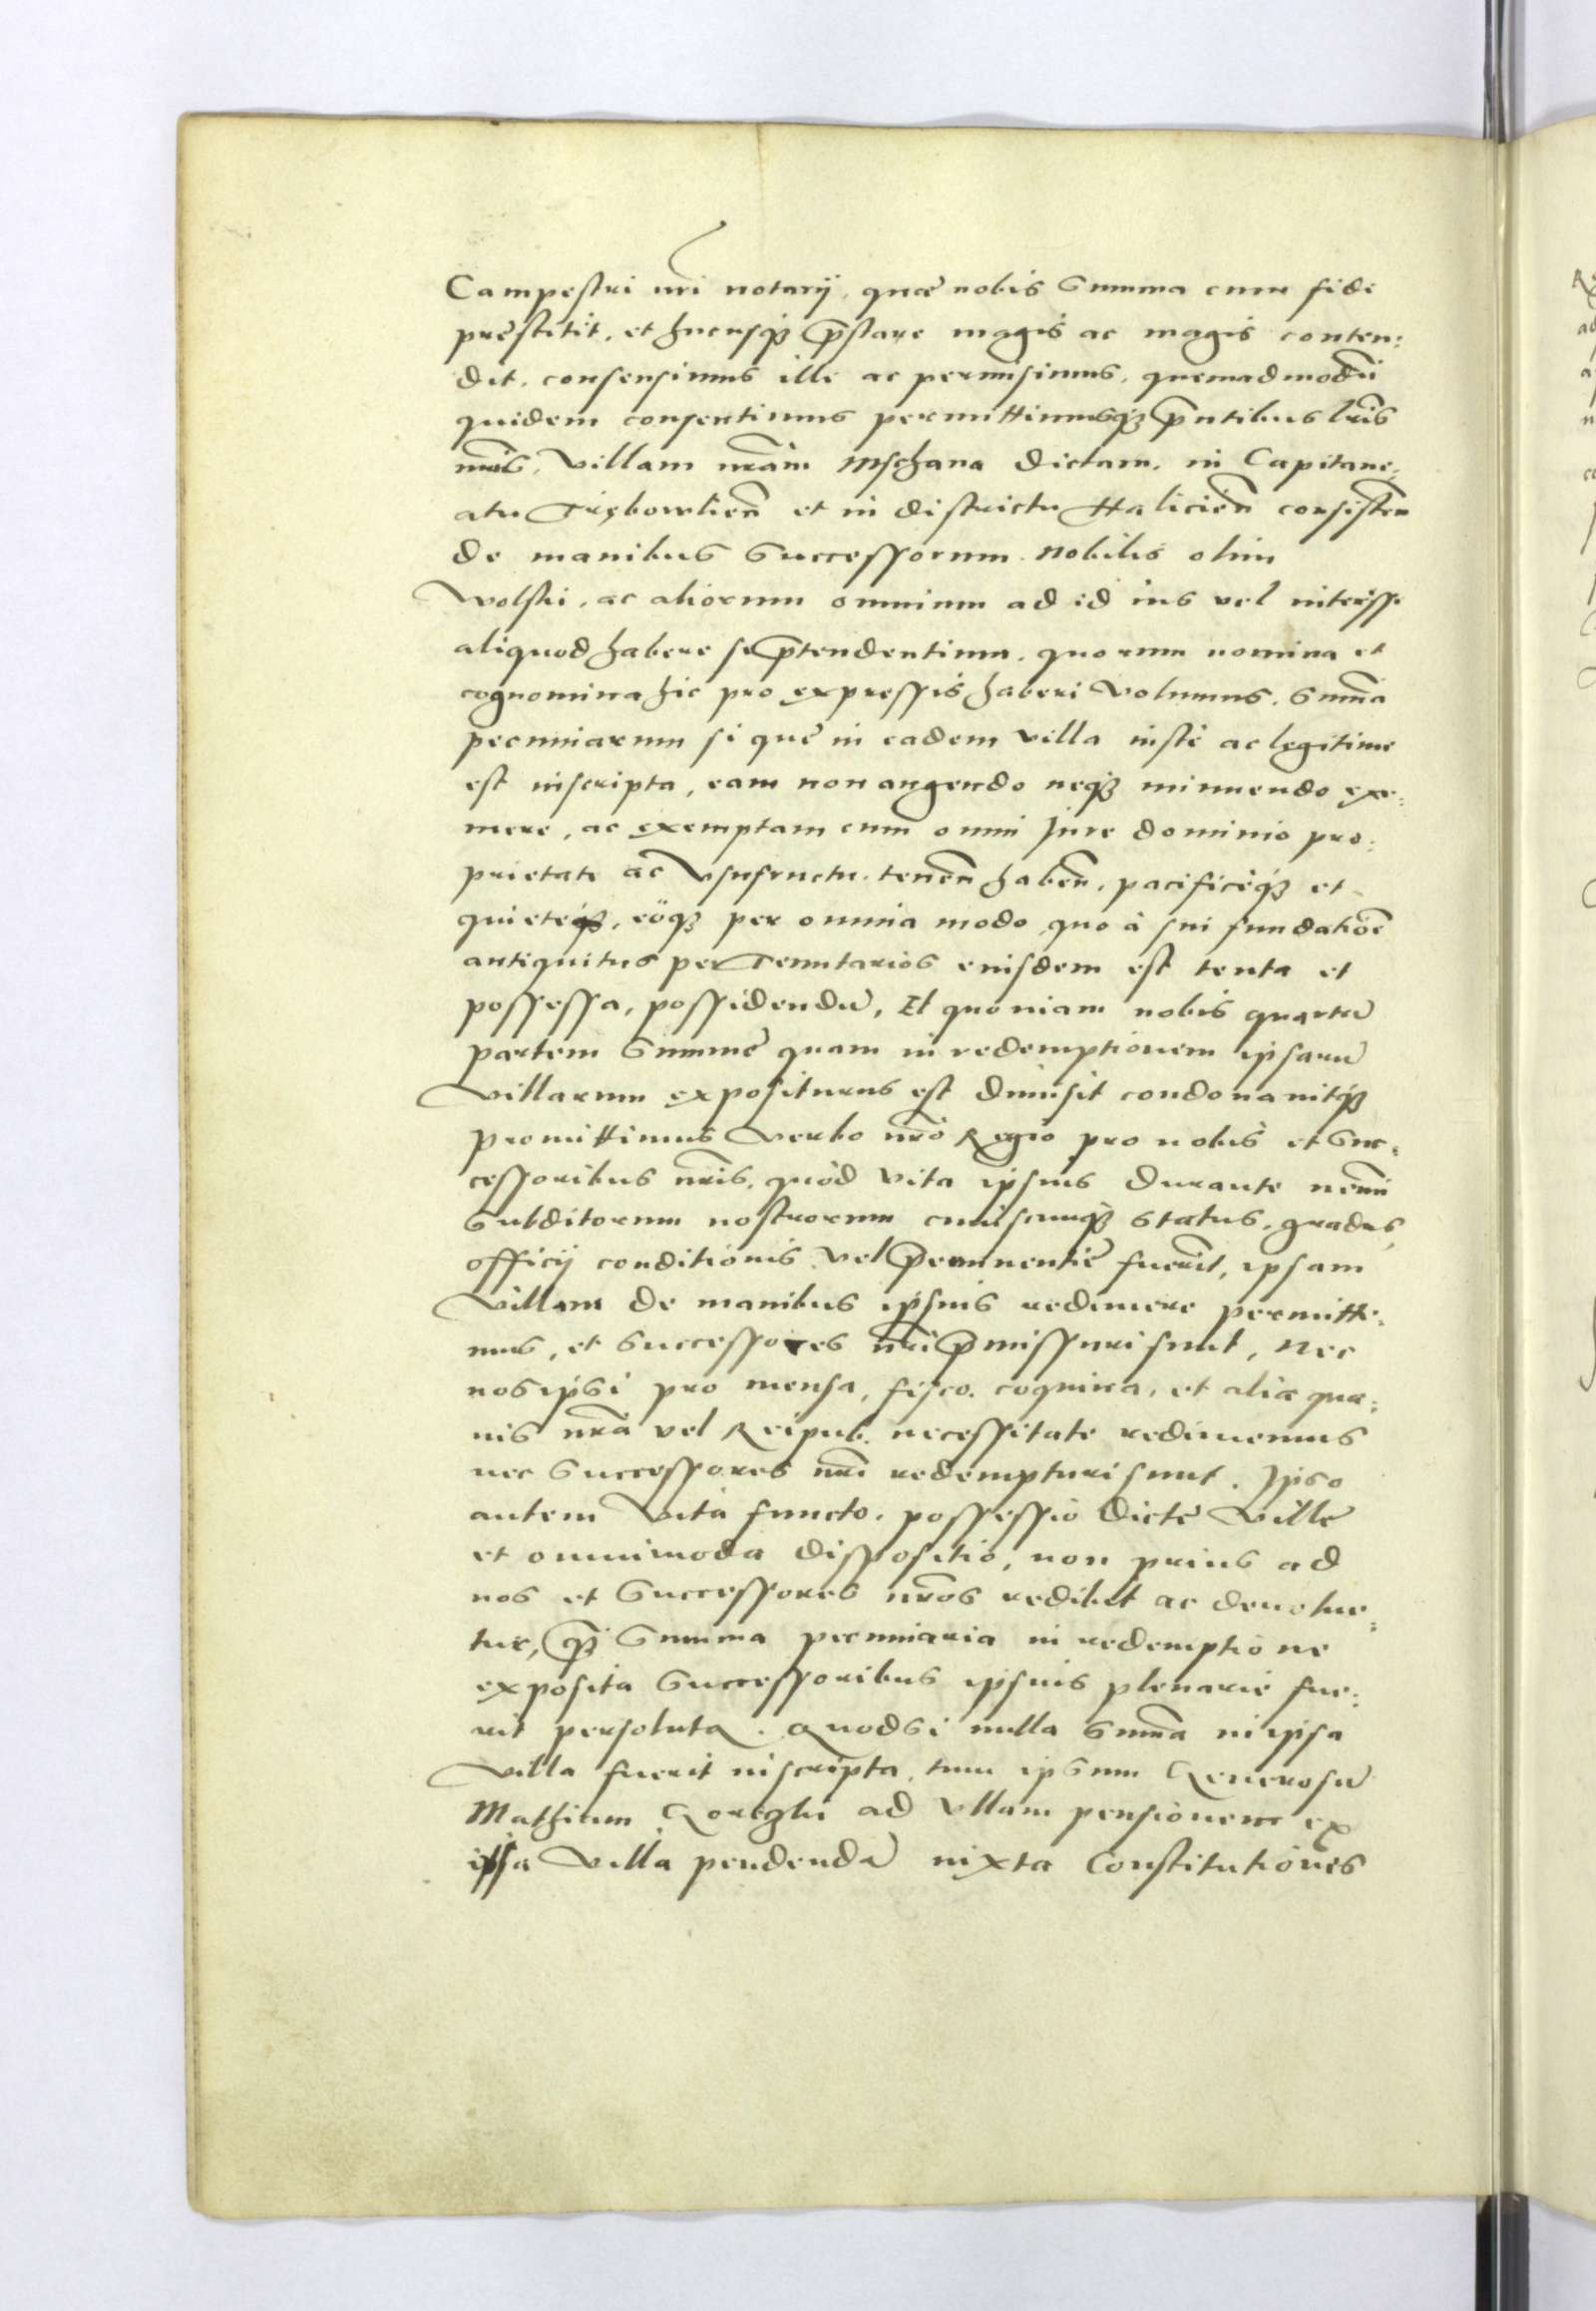 Campestri nri notarij, quæ nobis Summa cum fide
prestitit, et hucusq3 p̄stare magis ac magis conten:
dit, consensimus illi ac permisimus, quemadmodū
quidem consentimus permittimusq3 p̄ntibus lris
nris, Villam nram Mschana dictam, in Capitane:
atu Trębowlien̄ et in districtu Halicien̄ consisten̄
de manibus Successorum Nobilis olim
Wolski, ac aliorum omnium ad id ius vel interesse
aliquod habere se p̄tendentium, quorum nomina et
cognomina hic pro expressis haberi Volumus, Sum̄a
pecuniarum si que in eadem Villa iuste ac legitime
est inscripta, eam non augendo neq3 minuendo exi:
mere, ac exemptam cum omni Jure dominio pro:
prietate ac Vsufructu, tenen̄ haben̄, pacificeq3 et
quieteq3, eoq3 per omnia modo quo à sui fundatioē
antiquitus per Tenutarios eiusdem est tenta et
possessa, possidendū, Et quoniam nobis quartū
partem Summe quam in redemptionem ipsarū
Villarum expositurus est dimisit condonauitq3
Promittimus Verbo nro Regio pro nobis et Suc:
cessoribus nris, quòd Vita ipsius durante nemini
Subditorum nostrorum cuiuscunq3 Status, gradus,
officij conditionis Vel p̄eminentie fuerit, ipsam
Villam de manibus ipsius redimere permitte:
mus, et Successores nri p̄missuri sunt, Nec
nos ipsi pro mensa, fisco, coquina, et alia qua:
uis nra vel Reipub. necessitate redimemus
nec Successores nri redempturi sunt. Ipso
autem Vita functo, possessio dicte Ville
et omnimoda dispositio, non prius ad
nos et Successores nros redibit ac deuolue:
tur, q̄3 Summa pecuniaria in redemptione
exposita Successoribus ipsius plenarie fue:
rit persoluta. Quodsi nulla Sum̄a in ipsa
Villa fuerit inscripta, tum ipsum Generosū
Mathium ad Vllam pensionem ex
ipsa Villa pendendā iuxta Constitutiones